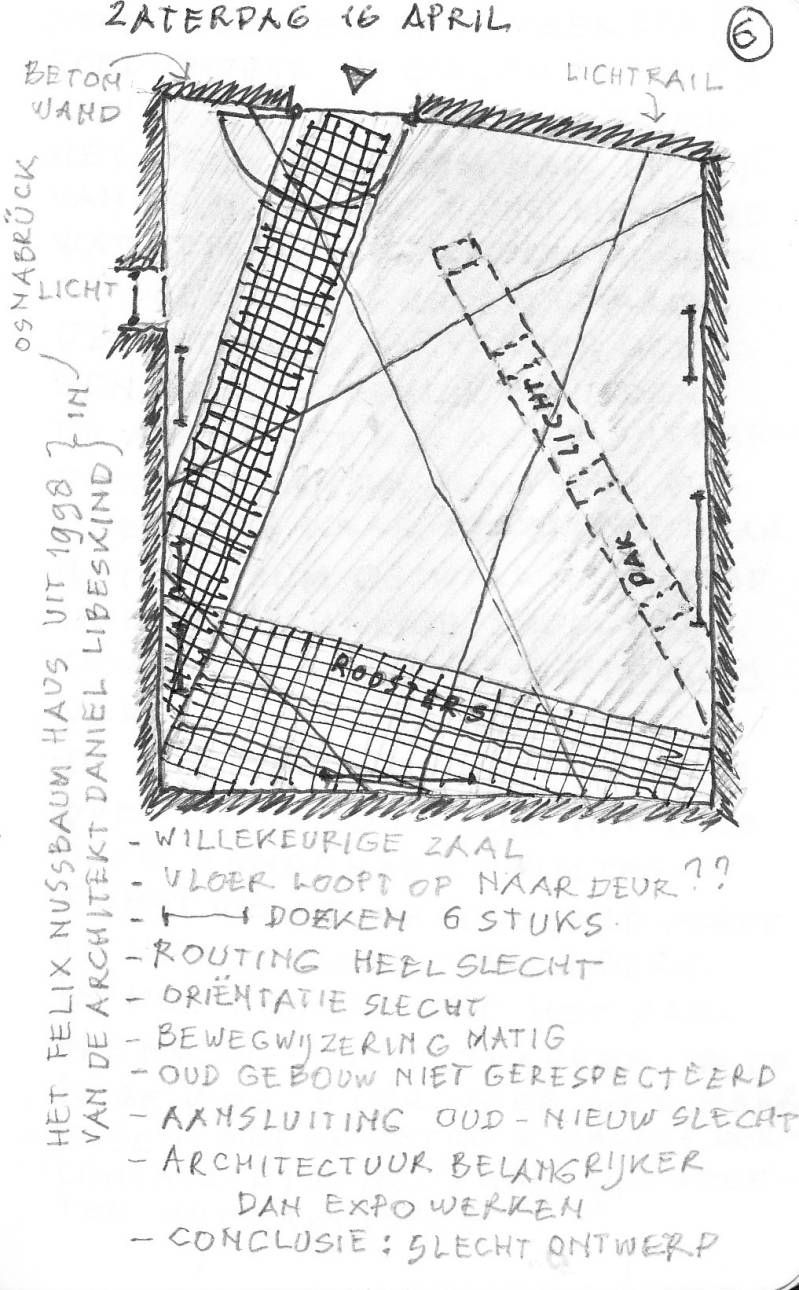 ZATERDAG 16 APRIL
6
BETON
WAND
LICHTRAIL
OSNABRÜCK
LICHT
LICHT
DAK
ROOSTERS
HET FELIX NUSSBAUM HAUS UIT 1998 } IN
VAN DE ARCHITEKT DANIEL LIBESKIND
- WILLEKEURIGE ZAAL
- VLOER LOOPT OP NAAR DEUR??
- DOEKEN 6 STUKS.
- ROUTING HEEL SLECHT
- ORIËNTATIE SLECHT
- BEWEGWIJZERING MATIG
- OUD GEBOUW NIET GERESPECTEERD
- AANSLUITING OUD-NIEUW SLECHT
- ARCHITECTUUR BELANGRIJKER
DAN EXPO WERKEN
- CONCLUSIE: SLECHT ONTWERP